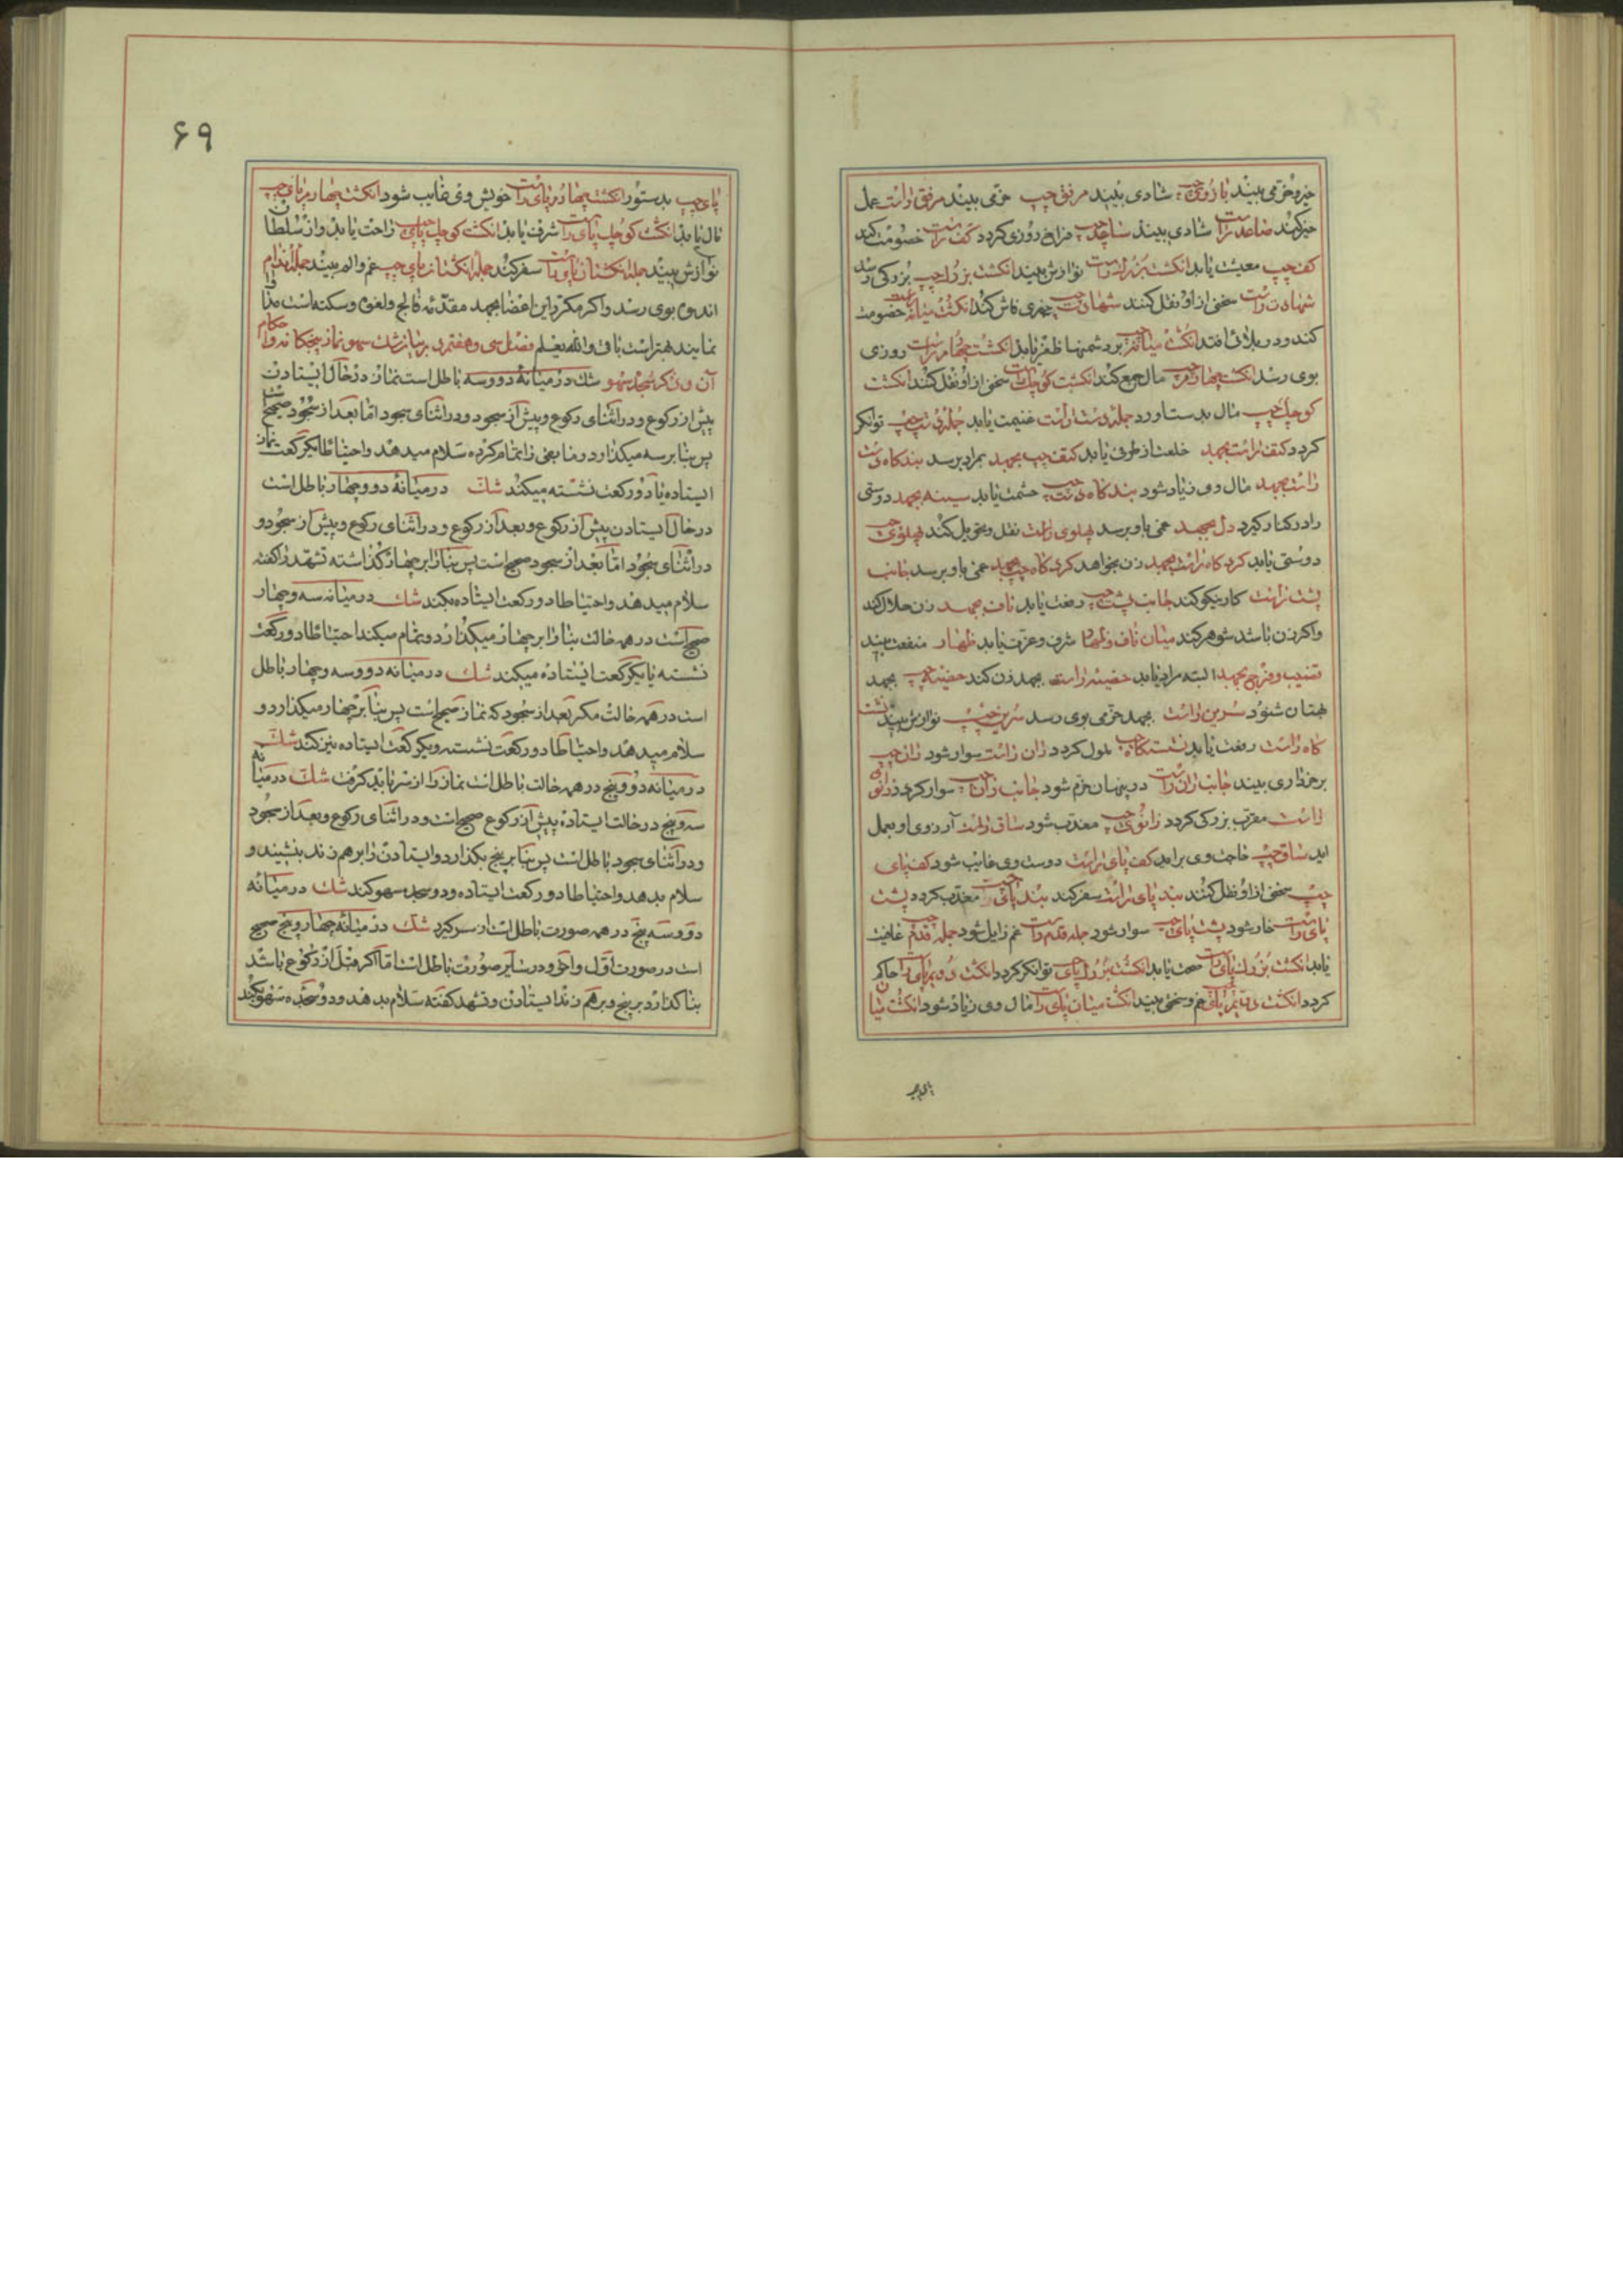 خیر و خرّمی بیند بازوی چپ شادی بیند مرفق چپ خرّمی بیند مرفق راست عمل
خیر کند ساعد راست شادی بیند ساعد چپ فراخ روزی کردد کف راست خصومت کند
کف چپ معیشت یابد انکشت بزرک راست نوازش بیند انکشت بزرک چپ بزرکی رسد
شهادت راست سخنی از او نقل کنند شهادت چپ چیزی فاش کند انکشت میانه راست خصومت
کند و در بلائی افتد انکشت میانه چپ بر دشمنها ظفر یابد انکشت چهارم راست روزی
بوی رسد انکشت چهارم چپ مال جمع کند انکشت کوچک راست سخنی از او نقل کنند انکشت
کوچک چپ مال بدست اورد جمله دست راست غنیمت یابد جمله دست چپ توانکر
کردد کتف راست بجهد خلعت از طرفی یابد کتف چپ بجهد بمراد برسد بندکاه دست
راست بجهد مال وی زیاد شود بندکاه دست چپ حشمت یابد سینه بجهد دوستی
را در کنار کیرد دل بجهد غمی باو برسد پهلوی راست نقل و تحویل کند پهلوی چپ
دوستی یابد کرده کاه راست بجهد زن بخواهد کرده کاه چپ بجهد غمی باو برسد جانب
پشت راست کار نیکو کند جانب پشت چپ رفعت یابد ناف بجهد زن حلال کند
واکر زن باشد شوهر کند میان ناف و ظهار شرف و عزت یابد ظهار منفعت بیند
قضیب و فرج بجهد البته مراد یابد خصیه راست بجهد زن کند خصیه چپ بجهد
بهتان شنود سرین راست بجهد خرّمی بوی رسد سرین چپ نوازش بیند نشست
کاه راست رفعت یابد نشستکاه چپ ملول کردد ران راست سوار شود ران چپ
برخذاری بیند جانب ران راست در پنهان خرّم شود جانب ران چپ سوار کردد زانوی
راست مقرّب بزرکی کردد زانوی چپ معذب شود ساق راست آرزوی او بعمل
اید ساق چپ حاجت وی براید کف پای راست دوست وی غایب شود کف پای
چپ سخنی از او نقل کنند بند پای راست سفر کند بند پای چپ معذب کردد پشت
پای راست خار شود پشت پای چپ سوار شود جمله قدم راست غم زایل شود جمله قدم چپ عافیت
یابد انکشت بزرک پای راست صحت یابد انکشت بزرک پای چپ توانکر کردد انکشت دویم پای راست حاکم
کردد انکشت دویم پای چپ غم و سختی بیند انکشت میان پای راست مال وی زیاد شود انکشت میان
پای چپ
۶۹
پای چپ بدستور انکشت چهارم پای راست خویش وی غایب شود انکشت چهارم پای چپ
مال یابد انکشت کوچک پای راست شرف یابد انکشت کوچک پای چپ راحت یابد و از سلطان
نوازش بیند جمله انکشتان پای راست سفر کند جمله انکشتان پای چپ غم و الم بیند جمله اندام
اندوه بوی رسد و اکر مکرّر این اعضا بجهد مقدّمه فالج و لغوه و سکته است مداوا
نمایند بهتر است باقی والله یعلم فصل سی و هفتم در بیان شک سهو نماز پنجکانه و احکام
آن و ذکر سجده سهو شک در میانه دو و سه باطل است نماز در حال ایستادن
پیش از رکوع و در اثنای رکوع و پیش از سجود و در اثنای سجود امّا بعد از سجود صحیح است
پس بنا بر سه میکذارد و مابقی را تمام کرده سلام میدهد و احتیاطا یکرکعت نماز
ایستاده یا دو رکعت نشسته میکند شک در میانه دو و چهار باطل است
در حال ایستادن پیش از رکوع و بعد از رکوع و در اثنای رکوع و پیش از سجود و
در اثنای سجود امّا بعد از سجود صحیح است پس بنا را بر چهار کذاشته تشهّد را کفته
سلام میدهد و احتیاطا دو رکعت ایستاده بکند شک در میانه سه و چهار
صحیح است در همه حالت بنا را بر چهار میکذارد و تمام میکند احتیاطا دو رکعت
نشسته یا یکرکعت ایستاده میکند شک در میانه دو و سه و چهار باطل
است در همه حالت مکر بعد از سجود که نماز صحیح است پس بنا بر چهار میکذارد و
سلام میدهد و احتیاطا دو رکعت نشسته و یکرکعت ایستاده نیز کند شک
در میانه دو و پنج در همه حالت باطل است نماز را از سر باید کرفت شک در میانه
سه و پنج در حالت ایستاده پیش از رکوع صحیح است و در اثنای رکوع و بعد از سجود
و در اثنای سجود باطل است پس بنا بر پنج بکذارد و ایستادن را بر هم زند بنشیند و
سلام بدهد و احتیاطا دو رکعت ایستاده و دو سجده سهو کند شک در میانه
دو و سه پنج در همه صورت باطل است از سر کیرد شک در میانه چهار و پنج صحیح
است در صورت اوّل و آخر و در سایر صورت باطل است امّا اکر قبل از رکوع باشد
بنا کذارد بر پنج و بر هم زند ایستادن و تشهد کفته سلام بدهد و دو سجده سهو بکند